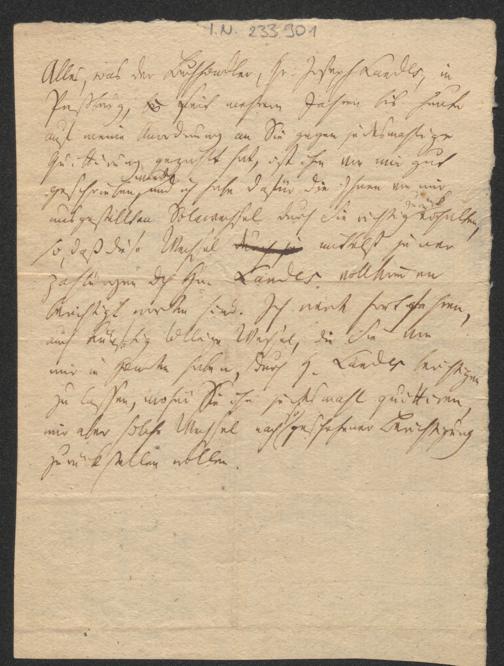 I.N. 233.901
Alles, was der Buchhändler, Hr. Joseph Landes, in
Preßburg, seit mehrern Jahren bis heute
auf meine Anordnung an Sie gegen jedesmahlige
Quittirung gezahlt hat, ist ihm von mir gut
geschrieben worden, und ich habe dafür die Ihnen von mir
ausgestellten Solawechsel durch Sie richtig zurück erhalten,
so, daß diese Wechsel mittelst jener
Zahlungen des Hrn. Landes vollkommen
berichtigt worden sind. Ich werde fortfahren,
auch künftig fällige Wechsel, die Sie von
mir in Händen haben, durch H. Landes berichtigen
zu lassen, wofür Sie ihm jedesmahl quittiren,
mir aber solche Wechsel nach geschehener Berichtigung
zurückstellen wollen.